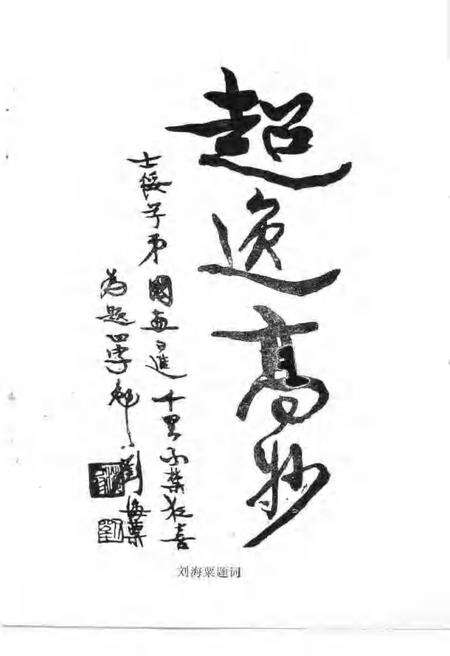 超逸高妙
士子弟國畫日進千里不禁狂喜
為題四字劉海粟
刘海粟题词